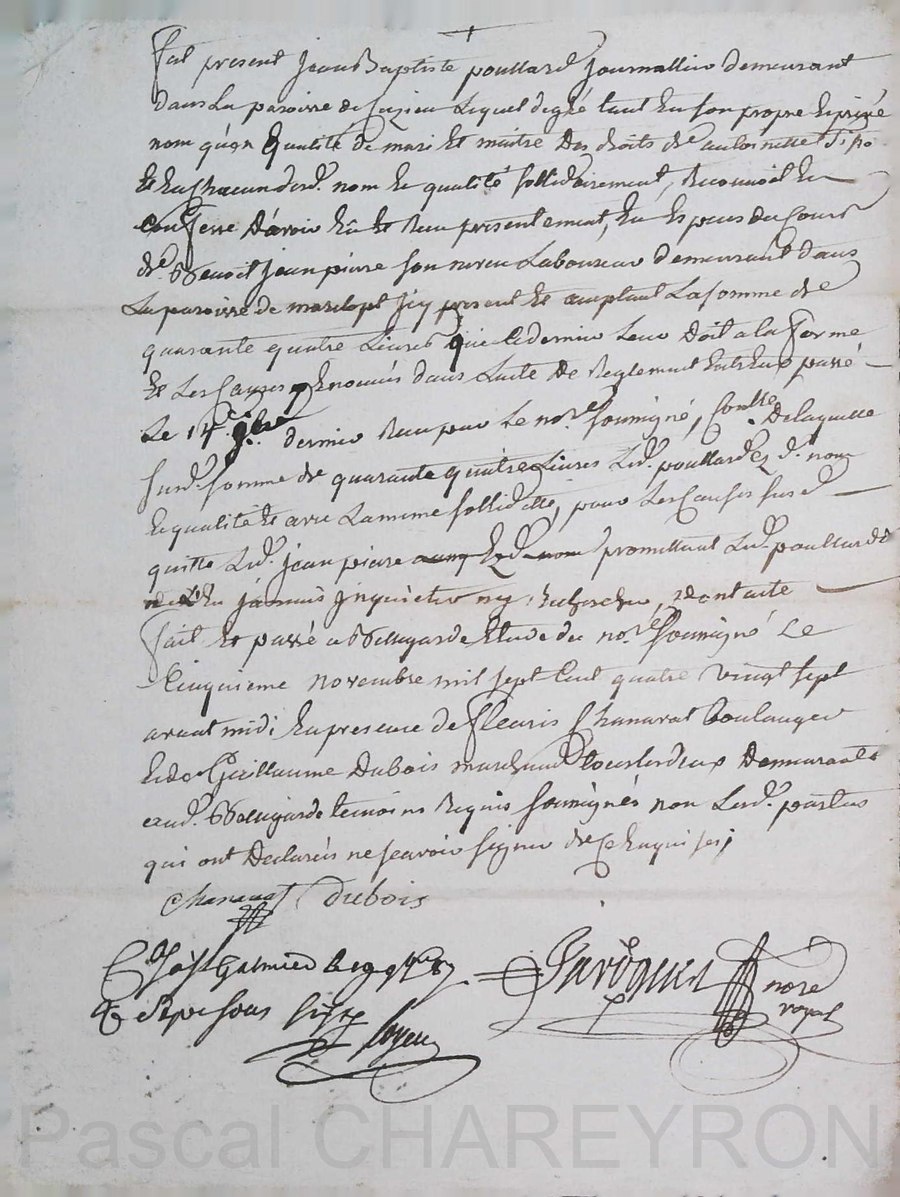 +
fut présent Jean Baptiste poullard Journallier demeurant
dans La paroisse de Cuzieu Lequel de gré tant En son propre Et privé
nom qu'en qualité de mari Et maitre Des droits de
Et En Chacun desd. nom Et qualité sollidairement, Reconnoit Et
Confesse D'avoir Eû Et Reçu présentement, En Espèces du Cours
de Benoit Jean pierre son neveu Laboureur demeurant dans
La paroisse de marclopt Icy présent Et acceptant La somme de
quarante quatre Livres que Ce dernier Leur Doit a la forme
Et Les Causes Enoncés dans L'acte De Reglement Entr'Eux passé
Le 14e 8bre dernier Reçu par Le nore. soussigné, De laquelle
susd. somme de quarante quatre Livres Led. poullard Ez d. nom
Et qualité Et avec La meme sollidité, pour Les Causes susd.
quitte Led. Jean pierre promettant Led. poullard de
ne L'En jamais Inquietter ny Rechercher, Dont acte
fait Et passé a Bellegarde Etude du nore. soussigné Le
Cinquieme novembre mil sept Cent quatre vingt sept
avant midi En presence de fleuris Chanavat boulanger
Et de Guillaume Dubois marchand tous les deux Demeurants
aud. Bellegarde temoins Requis soussignés non Lesd. parties
qui ont Declarés ne scavoir signer de Ce Enquises;
Chanavat Dubois
Cllé à St Galmier Le 19 9bre 87
R. Sept sous Six d.
nore
royal